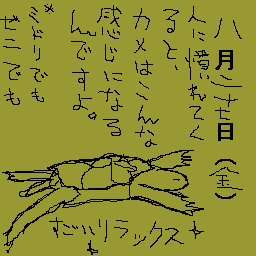 八月二十七日(金)
人に慣れてく
ると、
カメはこんな
感じになる
んですよ。
※ミドリでも
ゼニでも
すごいリラックス